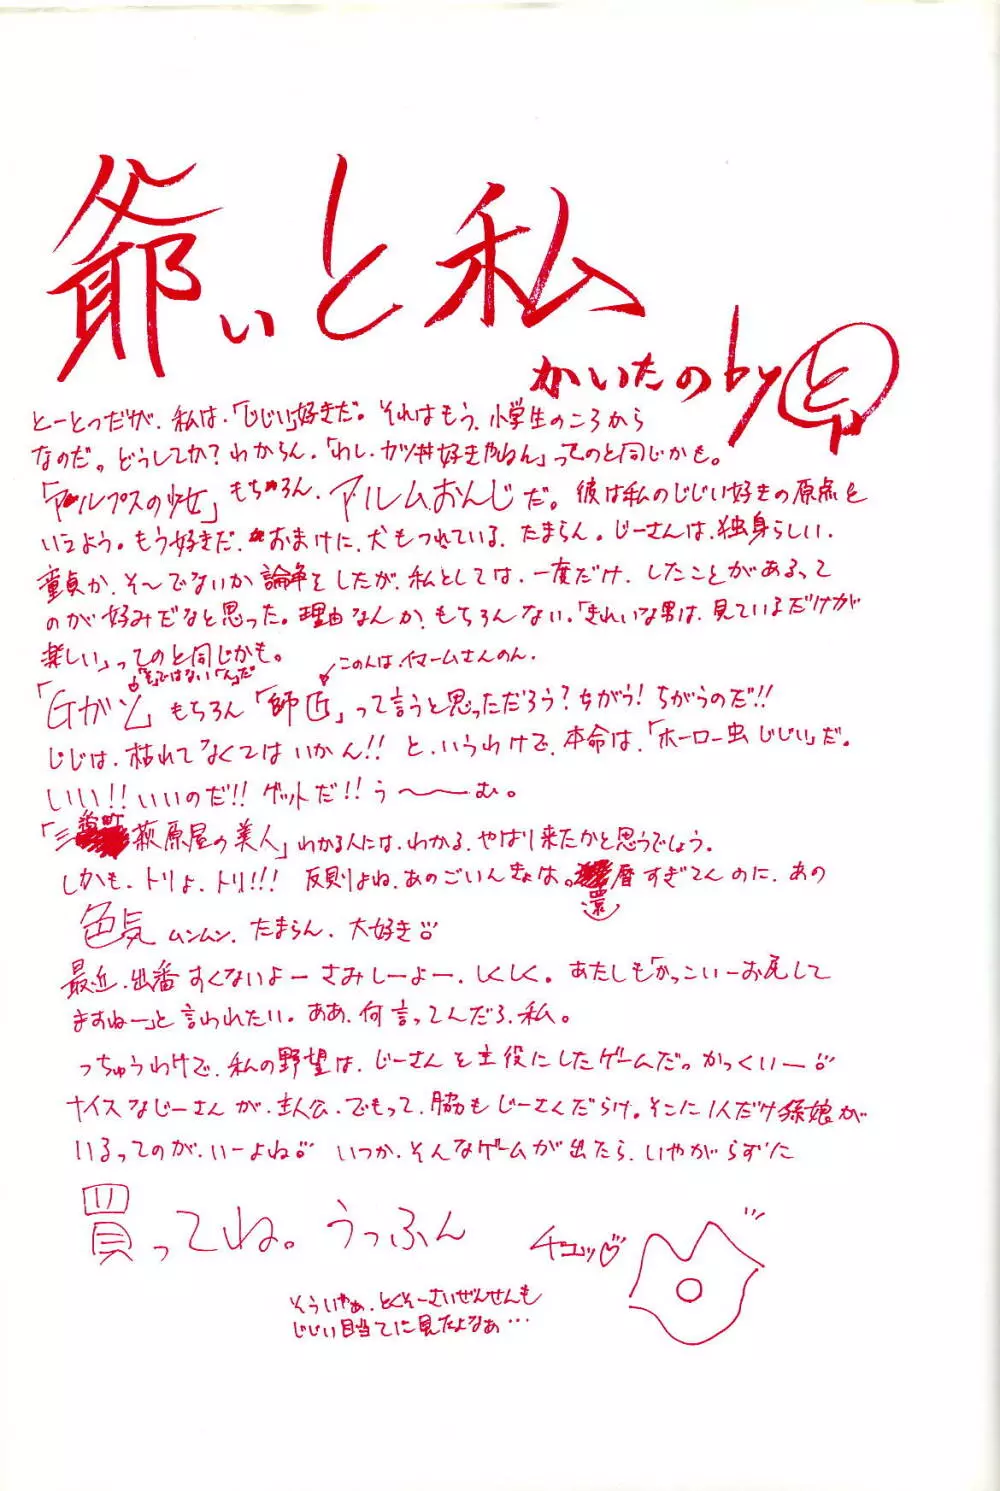 爺ぃと私
かいたのby と
とーとつだが、私は、「じじい」好きだ。それはもう、小学生のころから
なのだ。どうしてか？わからん。「わし、カツ丼好きやねん」ってのと同じかも。
「アルプスの少女」もちろん、アルムおんじだ。彼は私のじじい好きの原点と
いえよう。もう好きだ、おまけに、犬もつれている、たまらん。じーさんは、独身らしい、
童貞か、そ〜でないか論争をしたが、私としては、一度だけ、したことがあるって
のが好みだなと思った。理由なんか、もちろんない。「きれいな男は、見ているだけが
楽しい」ってのと同じかも。
「そ」ではない「ん」だ
このんは、イマームさんのん、
「Gガン」もちろん「師匠」って言うと思っただろう？ちがう！ちがうのだ!!
じじは、枯れてなくてはいかん!!と、いうわけで、本命は、「ホーロー虫じじい」だ。
しいい!!いいのだ!!ゲットだ!!う〜〜む。
「三番町萩原屋の美人」わかる人には、わかる、やはり来たかと思うでしょう。
しかも、トリよ、トリ!!!反則よね、あのごいんきょは。還暦すぎてんのに、あの
色気ムンムン、たまらん、大好き
最近、出番すくないよーさみしーよー、しくしく。あたしも「かっこいーお尻して
ますねー」と言われたい。ああ、何言ってんだろ、私。
っちゅうわけで、私の野望は、じーさんを主役にしたゲームだ。かっくいー
ナイスなじーさんが、主人公、でもって、脇もじーさんだらけ。そこに1人だけ孫娘が
いるってのが、いーよね いつか、そんなゲームが出たら、いやがらずに
買ってね。うっふん
チュッ♡
そういやぁ、とくそーさいぜんせんも
じじい目当てに見たよなぁ…